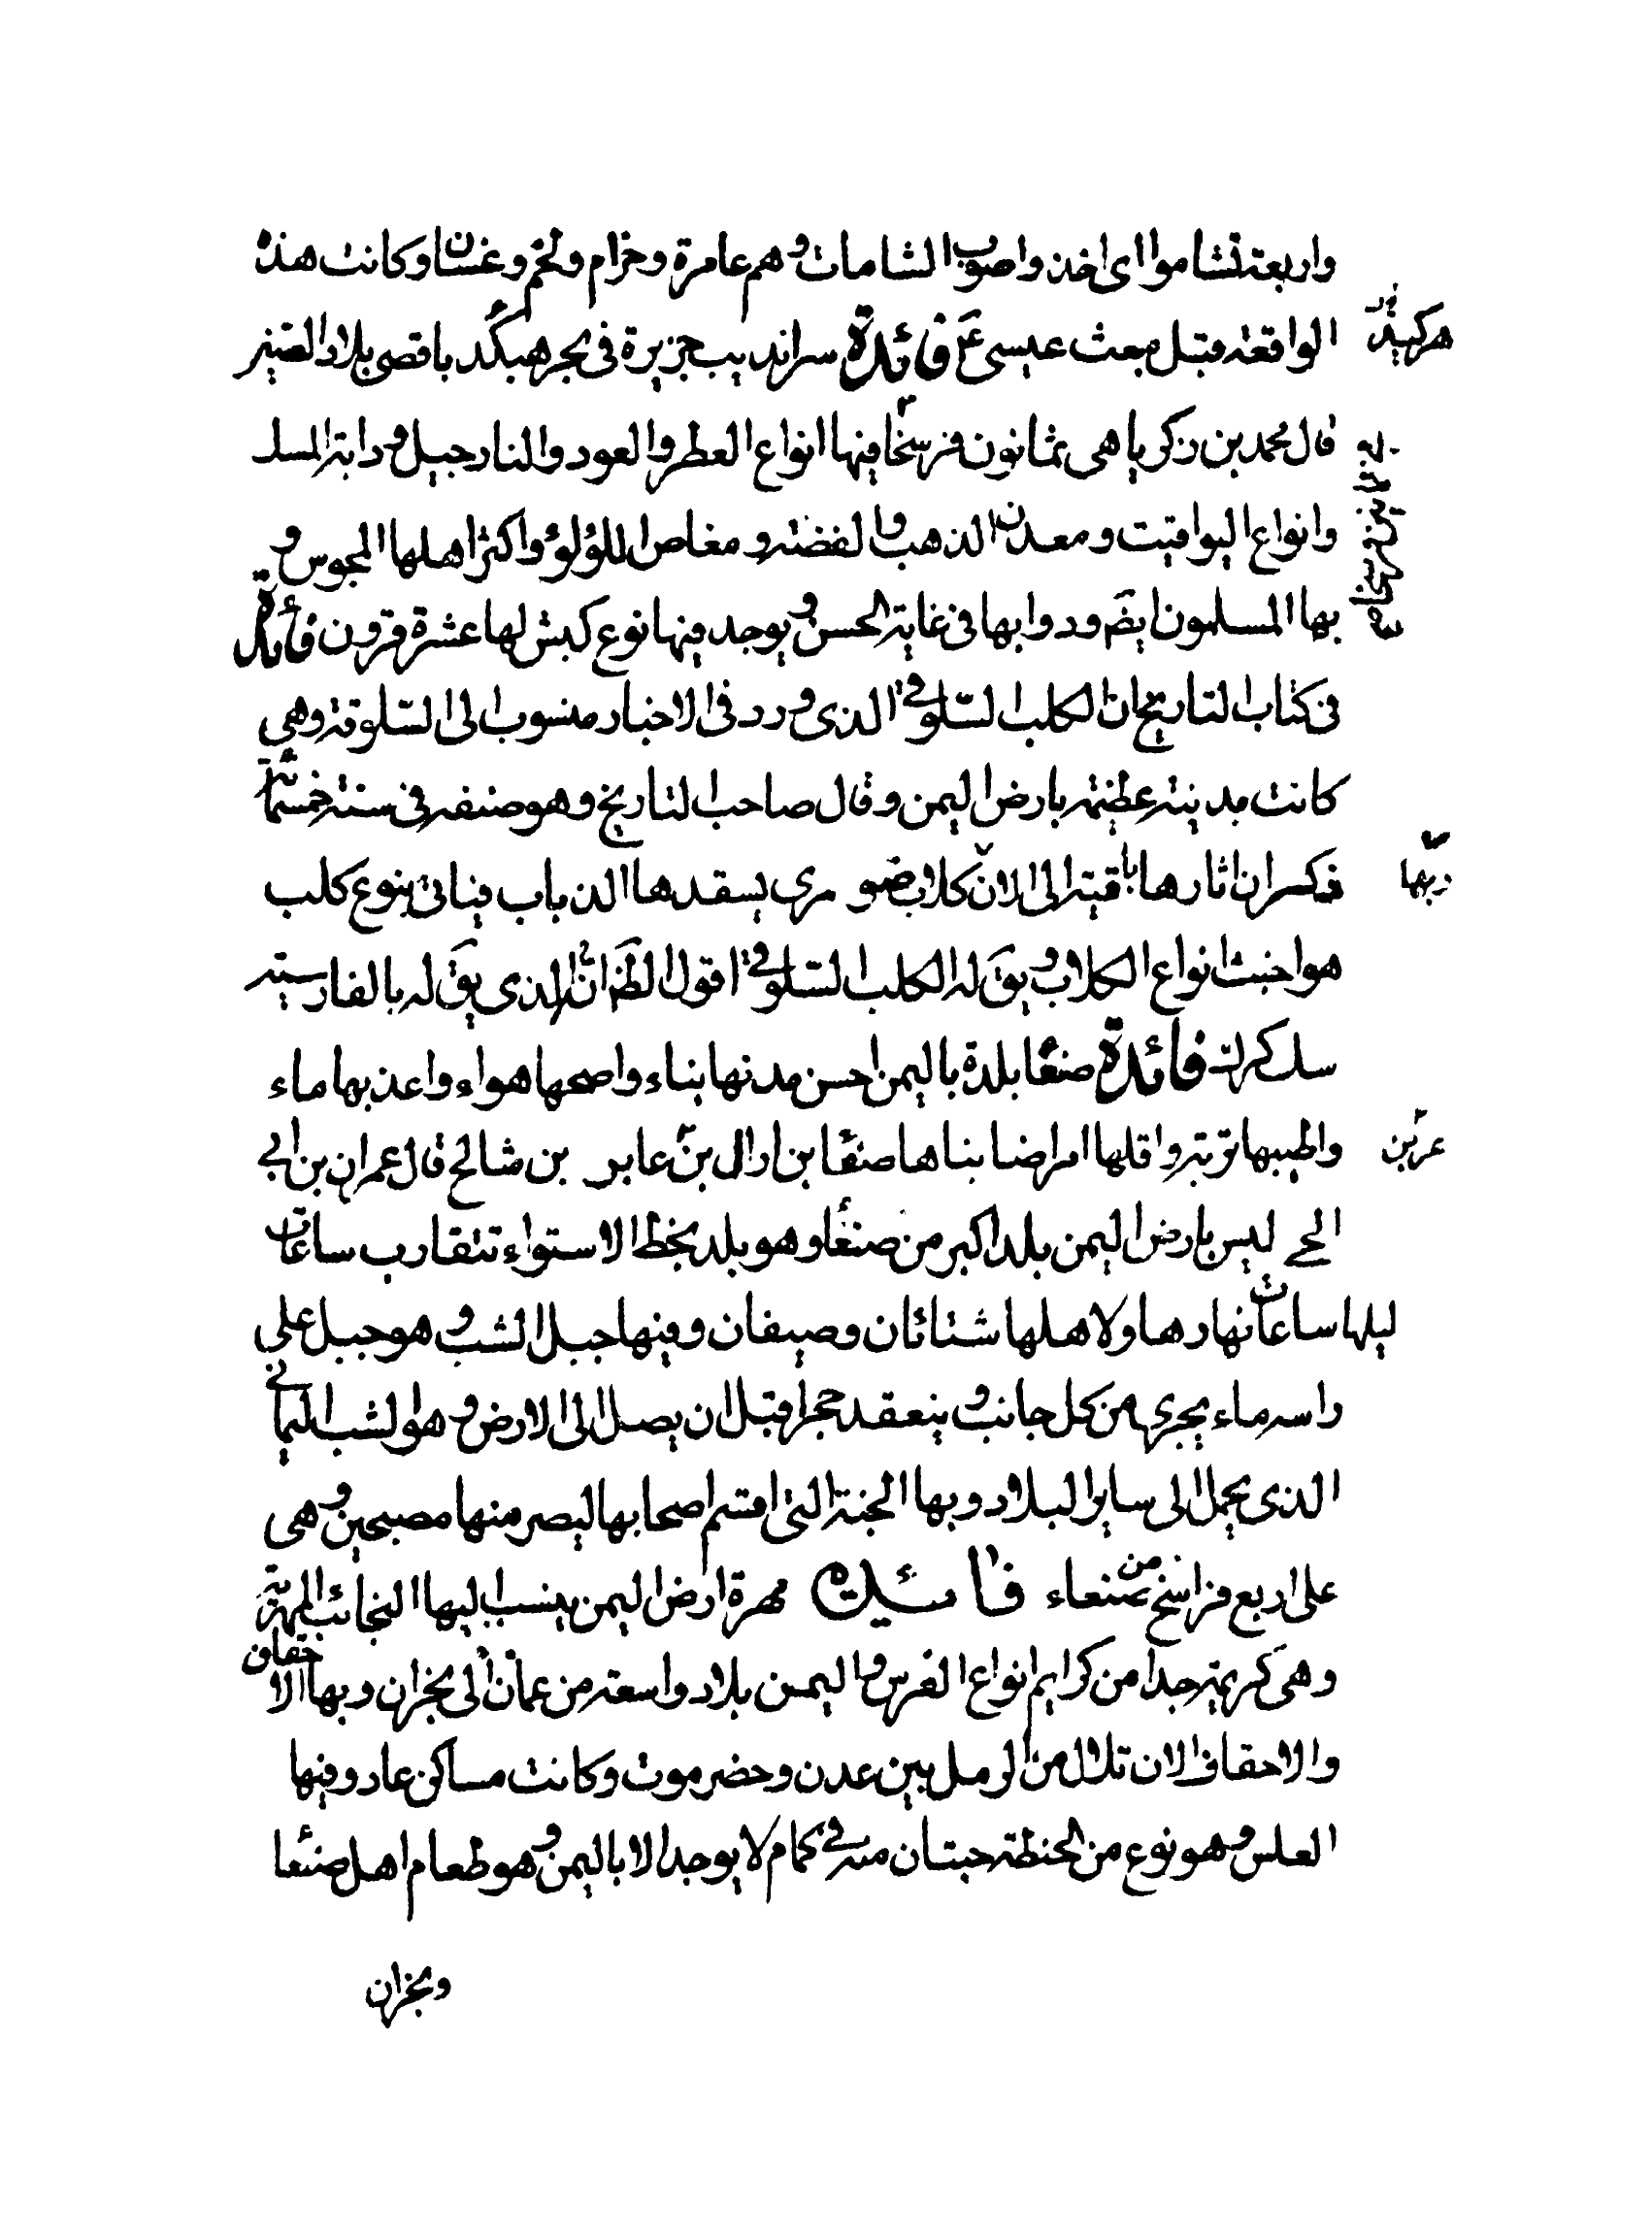 واربعة تشاموا اى اخذوا صوب الشامات وهم عامرة وخزام ولخم وغسان وكانت هذه
الواقعة قبل مبعث عيسى ع فائدة سرانديب جزيرة فى بحر هبكند باقصى بلاد الصين
هركند
قال محمد بن زكريا هى ثمانون فرسخا فيها انواع العطر والعود والنارجيل ودابة المسك
وانواع اليواقيت ومعدن الذهب والفضة ومغاص اللؤلؤ واكثر اهلها المجوس و
بها المسلمون ايض ودوابها فى غاية الحسن ويوجد فيها نوع كبش لها عشرة قرون فائدة
فى كتاب التاريخ ان الكلب السلوقى الذى ورد فى الاخبار منسوب الى السلوقة وهى
كانت مدينة عظيمة بارض اليمن وقال صاحب التاريخ وهو صنفه فى سنة خمسمائة
فكسر ان اثارها باقية الى الان كلاب ضو مرى يسفدها الذباب فياتى بنوع كلب
هو اخبث انواع الكلاب ويق له الكلب السلوقى اقول الظ انه الذى يق له بالفارسية
فائدة صنعا بلدة باليمن احسن مدنها بناء واصحها هواء واعذبها ماء
واطيبها تربة واقلها امراضا بناها صنعا بن ارال بن عابر بن شالخ قال عمران بن ابى
عر بن
الحى ليس بارض اليمن بلد اكبر من صنعا وهو بلد بخط الاستواء تتقارب ساعات
ليلها ساعات نهارها ولاهلها شتائان وصيفان وفيها جبل الشب وهو جبل على
راسه ماء يجرى من كل جانب وينعقد حجرا قبل ان يصل الى الارض وهو الشب اليمانى
الذى يحمل الى ساير البلاد وبها الجنة التى اقسم اصحابها ليصرمنها مصبحين وهى
على اربع فراسخ من صنعاء فائدة مهرة ارض اليمن ينسب اليها النجائب المهرية
وهى كريمة جدا من كرايم انواع الفرس واليمن بلاد واسعة من عمان الى نجران وبها الاحقاف
والاحقاف الان تلال من الرمل بين عدن وحضرموت وكانت مساكن عاد وفيها
العلس وهو نوع من الحنطة حبتان منه فى كمام لا يوجد الا باليمن وهو طعام اهل صنعا
ونجران